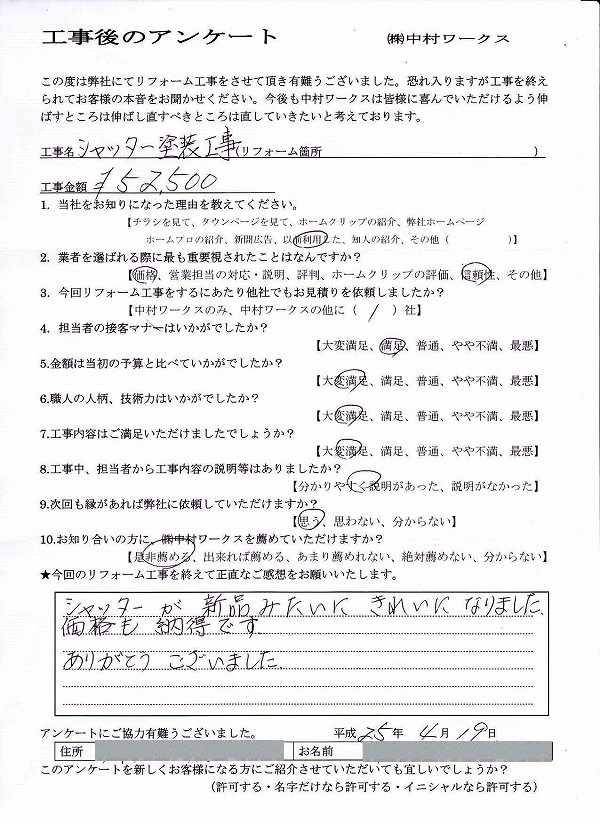 工事後のアンケート ㈱中村ワークス
この度は弊社にてリフォーム工事をさせて頂き有難うございました。恐れ入りますが工事を終え
られてお客様の本音をお聞かせください。今後も中村ワークスは皆様に喜んでいただけるよう伸
ばすところは伸ばし直すべきところは直していきたいと考えております。
工事名 シャッター塗装工事(リフォーム箇所 )
工事金額 ¥52,500
1. 当社をお知りになった理由を教えてください。
【チラシを見て、タウンページを見て、ホームクリップの紹介、弊社ホームページ
ホームプロの紹介、新聞広告、以前利用した、知人の紹介、その他（ ）】
2. 業者を選ばれる際に最も重要視されたことはなんですか？
【価格、営業担当の対応・説明、評判、ホームクリップの評価、信頼性、その他】
3. 今回リフォーム工事をするにあたり他社でもお見積りを依頼しましたか？
【中村ワークスのみ、中村ワークスの他に（ / ）社】
4. 担当者の接客マナーはいかがでしたか？
【大変満足、満足、普通、やや不満、最悪】
5.金額は当初の予算と比べていかがでしたか？
【大変満足、満足、普通、やや不満、最悪】
6.職人の人柄、技術力はいかがでしたか？
【大変満足、満足、普通、やや不満、最悪】
7.工事内容はご満足いただけましたでしょうか？
【大変満足、満足、普通、やや不満、最悪】
8.工事中、担当者から工事内容の説明等はありましたか？
【分かりやすく説明があった、説明がなかった】
9.次回も縁があれば弊社に依頼していただけますか？
【思う、思わない、分からない】
10.お知り合いの方に、㈱中村ワークスを薦めていただけますか？
【是非薦める、出来れば薦める、あまり薦めれない、絶対薦めない、分からない】
★今回のリフォーム工事を終えて正直なご感想をお願いいたします。
シャッターが 新品みたいに きれいに なりました.
価格も 納得です.
ありがとう ございました.
アンケートにご協力有難うございました。 平成 25 年 4 月 19 日
住所 お名前
このアンケートを新しくお客様になる方にご紹介させていただいても宜しいでしょうか？
(許可する・名字だけなら許可する・イニシャルなら許可する)